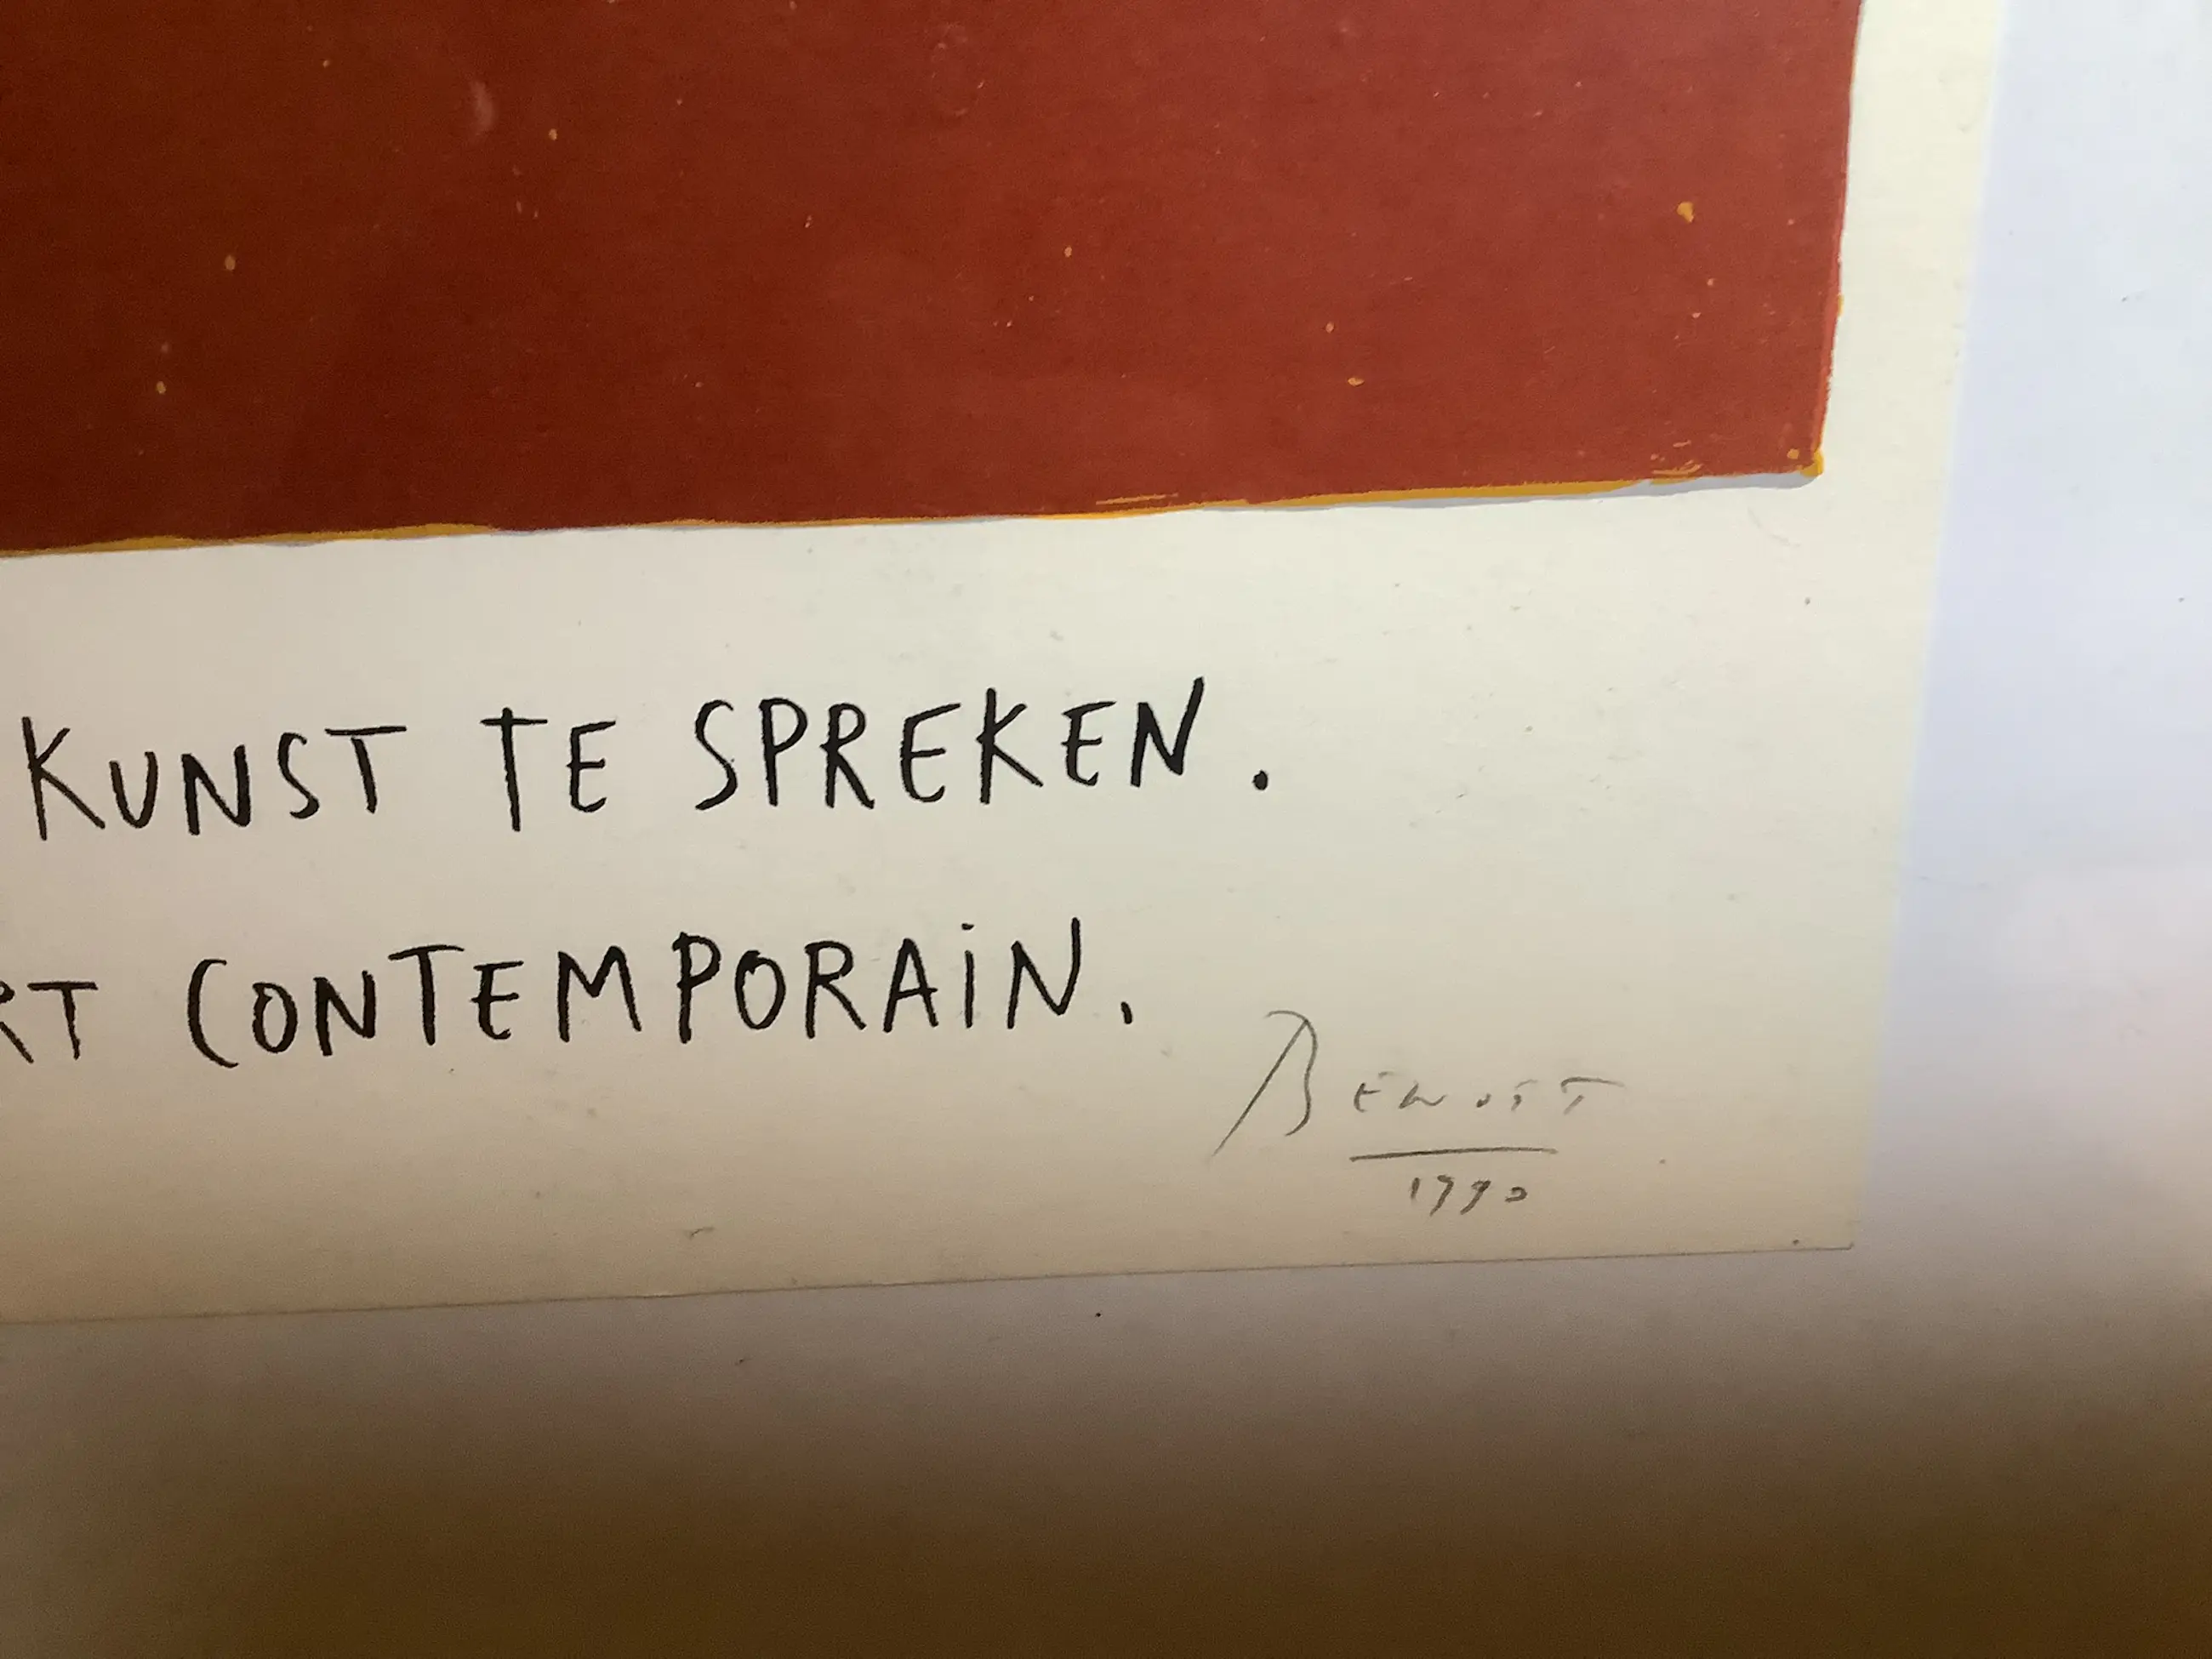 KUNST TE SPREKEN.
RT CONTEMPORAiN.
BENOIT
1990